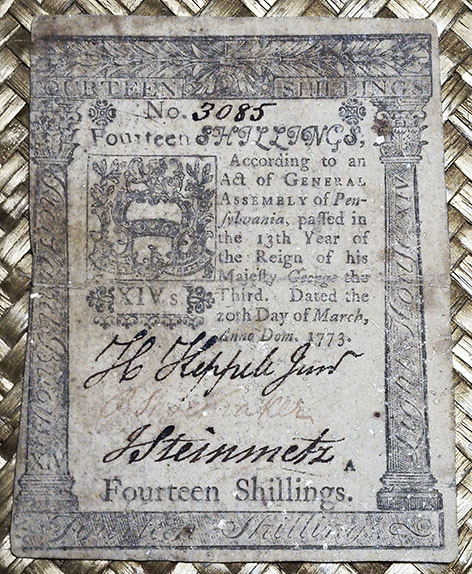 FOURTEEN SHILLINGS
No. 3085
Fourteen SHILLINGS,
According to an
Act of GENERAL
ASSEMBLY of Pen-
sylvania, passed in
the 13th Year of
the Reign of his
Majesty George the
Third. Dated the
20th Day of March,
Anno Dom. 1773.
XIV s.
H Keppele Junr
Shoemaker
J Steinmetz
A
Fourteen Shillings.
Fourteen Shillings